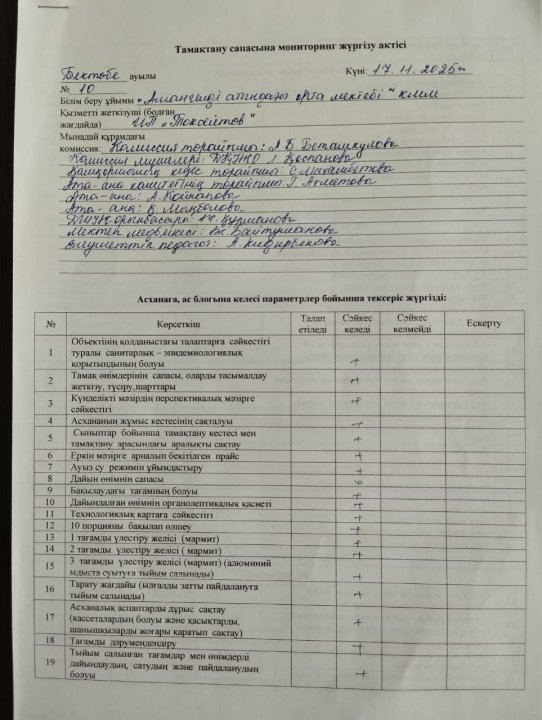 Тамақтану сапасына мониторинг жүргізу актісі
Бектөбе ауылы Күні: 17.11.2025ж
№ 10
Білім беру ұйымы "Амангелді атындағы орта мектебі" КММ
Қызметті жеткізуші (болған
жағдайда) ИП "Токсейтов"
Мынадай құрамдағы
комиссия: Комиссия төрайымы: Л Б Доташкулова
Комиссия мүшелері: ДТІЖО Л Қоспанова
Қамқоршылық кеңес төрайымы: С Махамбетова
Ата-ана комитетінің төрайымы Г. Ахметова
Ата-ана: А
Ата-ана: К.
орынбасары: Құрманова
Мектеп медбикесі: Байтуманова
Әлеуметтік педагог: А
Асханаға, ас блогына келесі параметрлер бойынша тексеріс жүргізді:
№ Көрсеткіш Талап етіледі Сәйкес келеді Сәйкес келмейді Ескерту
1 Объектінің қолданыстағы талаптарға сәйкестігі
туралы санитарлық – эпидемиологиялық
қорытындының болуы +
2 Тамақ өнімдерінің сапасы, оларды тасымалдау
жеткізу, түсіру,шарттары +
3 Күнделікті мәзірдің перспективалық мәзірге
сәйкестігі +
4 Асхананың жұмыс кестесінің сақталуы +
5 Сыныптар бойынша тамақтану кестесі мен
тамақтану арасындағы аралықты сақтау +
6 Еркін мәзірге арналып бекітілген прайс +
7 Ауыз су режимін ұйымдастыру +
8 Дайын өнімнің сапасы +
9 Бақылаудағы тағамның болуы +
10 Дайындалған өнімнің органолептикалық қасиеті +
11 Технологиялық картаға сәйкестігі +
12 10 порцияны бақылап өлшеу +
13 1 тағамды үлестіру желісі (мармит) +
14 2 тағамды үлестіру желісі ( мармит) +
15 3 тағамды үлестіру желісі (мармит) (алюминий
ыдыста суытуға тыйым салынады) +
16 Тарату жағдайы (ылғалды затты пайдалануға
тыйым салынады) +
17 Асханалық аспаптарды дұрыс сақтау
(кассеталардың болуы және қасықтарды,
шанышқыларды жоғары қаратып сақтау) +
18 Тағамды дәрумендендіру +
19 Тыйым салынған тағамдар мен өнімдерді
дайындаудың, сатудың және пайдаланудың
болуы +